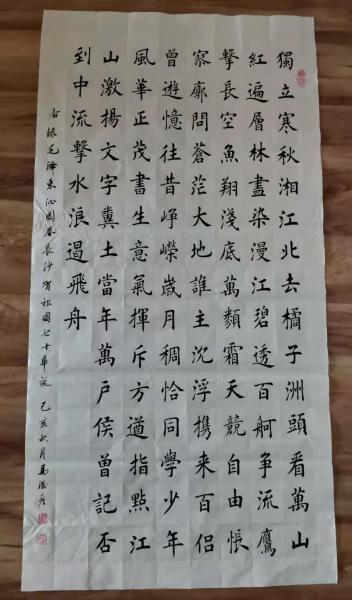 獨立寒秋湘江北去橘子洲頭看萬山
紅遍層林盡染漫江碧透百舸爭流鷹
擊長空魚翔淺底萬類霜天競自由悵
寥廓問蒼茫大地誰主沉浮携来百侣
曾遊憶往昔崢嶸歲月稠恰同學少年
風華正茂書生意氣揮斥方遒指點江
山激揚文字糞土當年萬戶侯曾記否
到中流擊水浪遏飛舟
右錄毛澤東沁園春長沙賀祖國七十華誕 己亥秋月